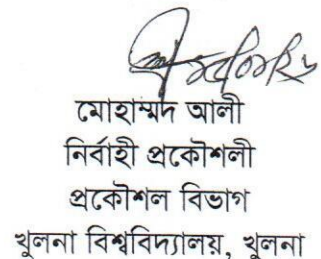 মোহাম্মদ আলী
নির্বাহী প্রকৌশলী
প্রকৌশল বিভাগ
খুলনা বিশ্ববিদ্যালয়, খুলনা